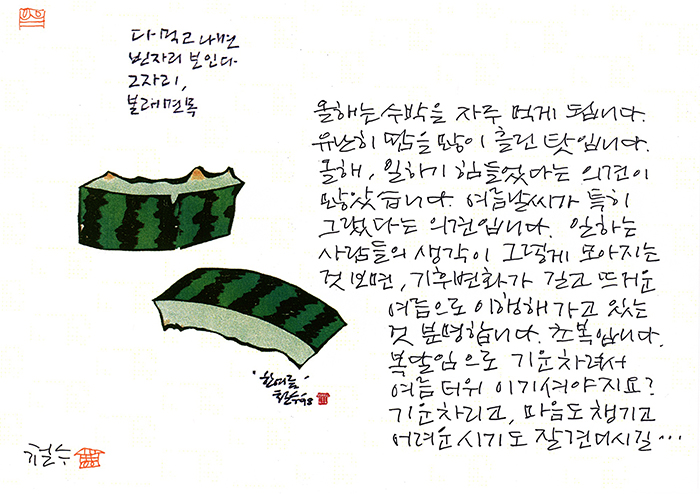 다 먹고 나면
빈자리 보인다
그자리,
본래면목
올해는 수박을 자주 먹게 됩니다.
유난히 땀을 많이 흘린 탓입니다.
올해, 일하기 힘들었다는 의견이
많았습니다. 여름날씨가 특히
그랬다는 의견입니다. 일하는
사람들의 생각이 그렇게 모아지는
것 보면, 기후변화가 길고 뜨거운
여름으로 이행해 가고 있는
것 분명합니다. 초복입니다.
복달임으로 기운차려서
여름 더위 이기셔야지요?
기운차리고, 마음도 챙기고
어려운 시기도 잘 견디시길…
'한여름'
철수 98
철수